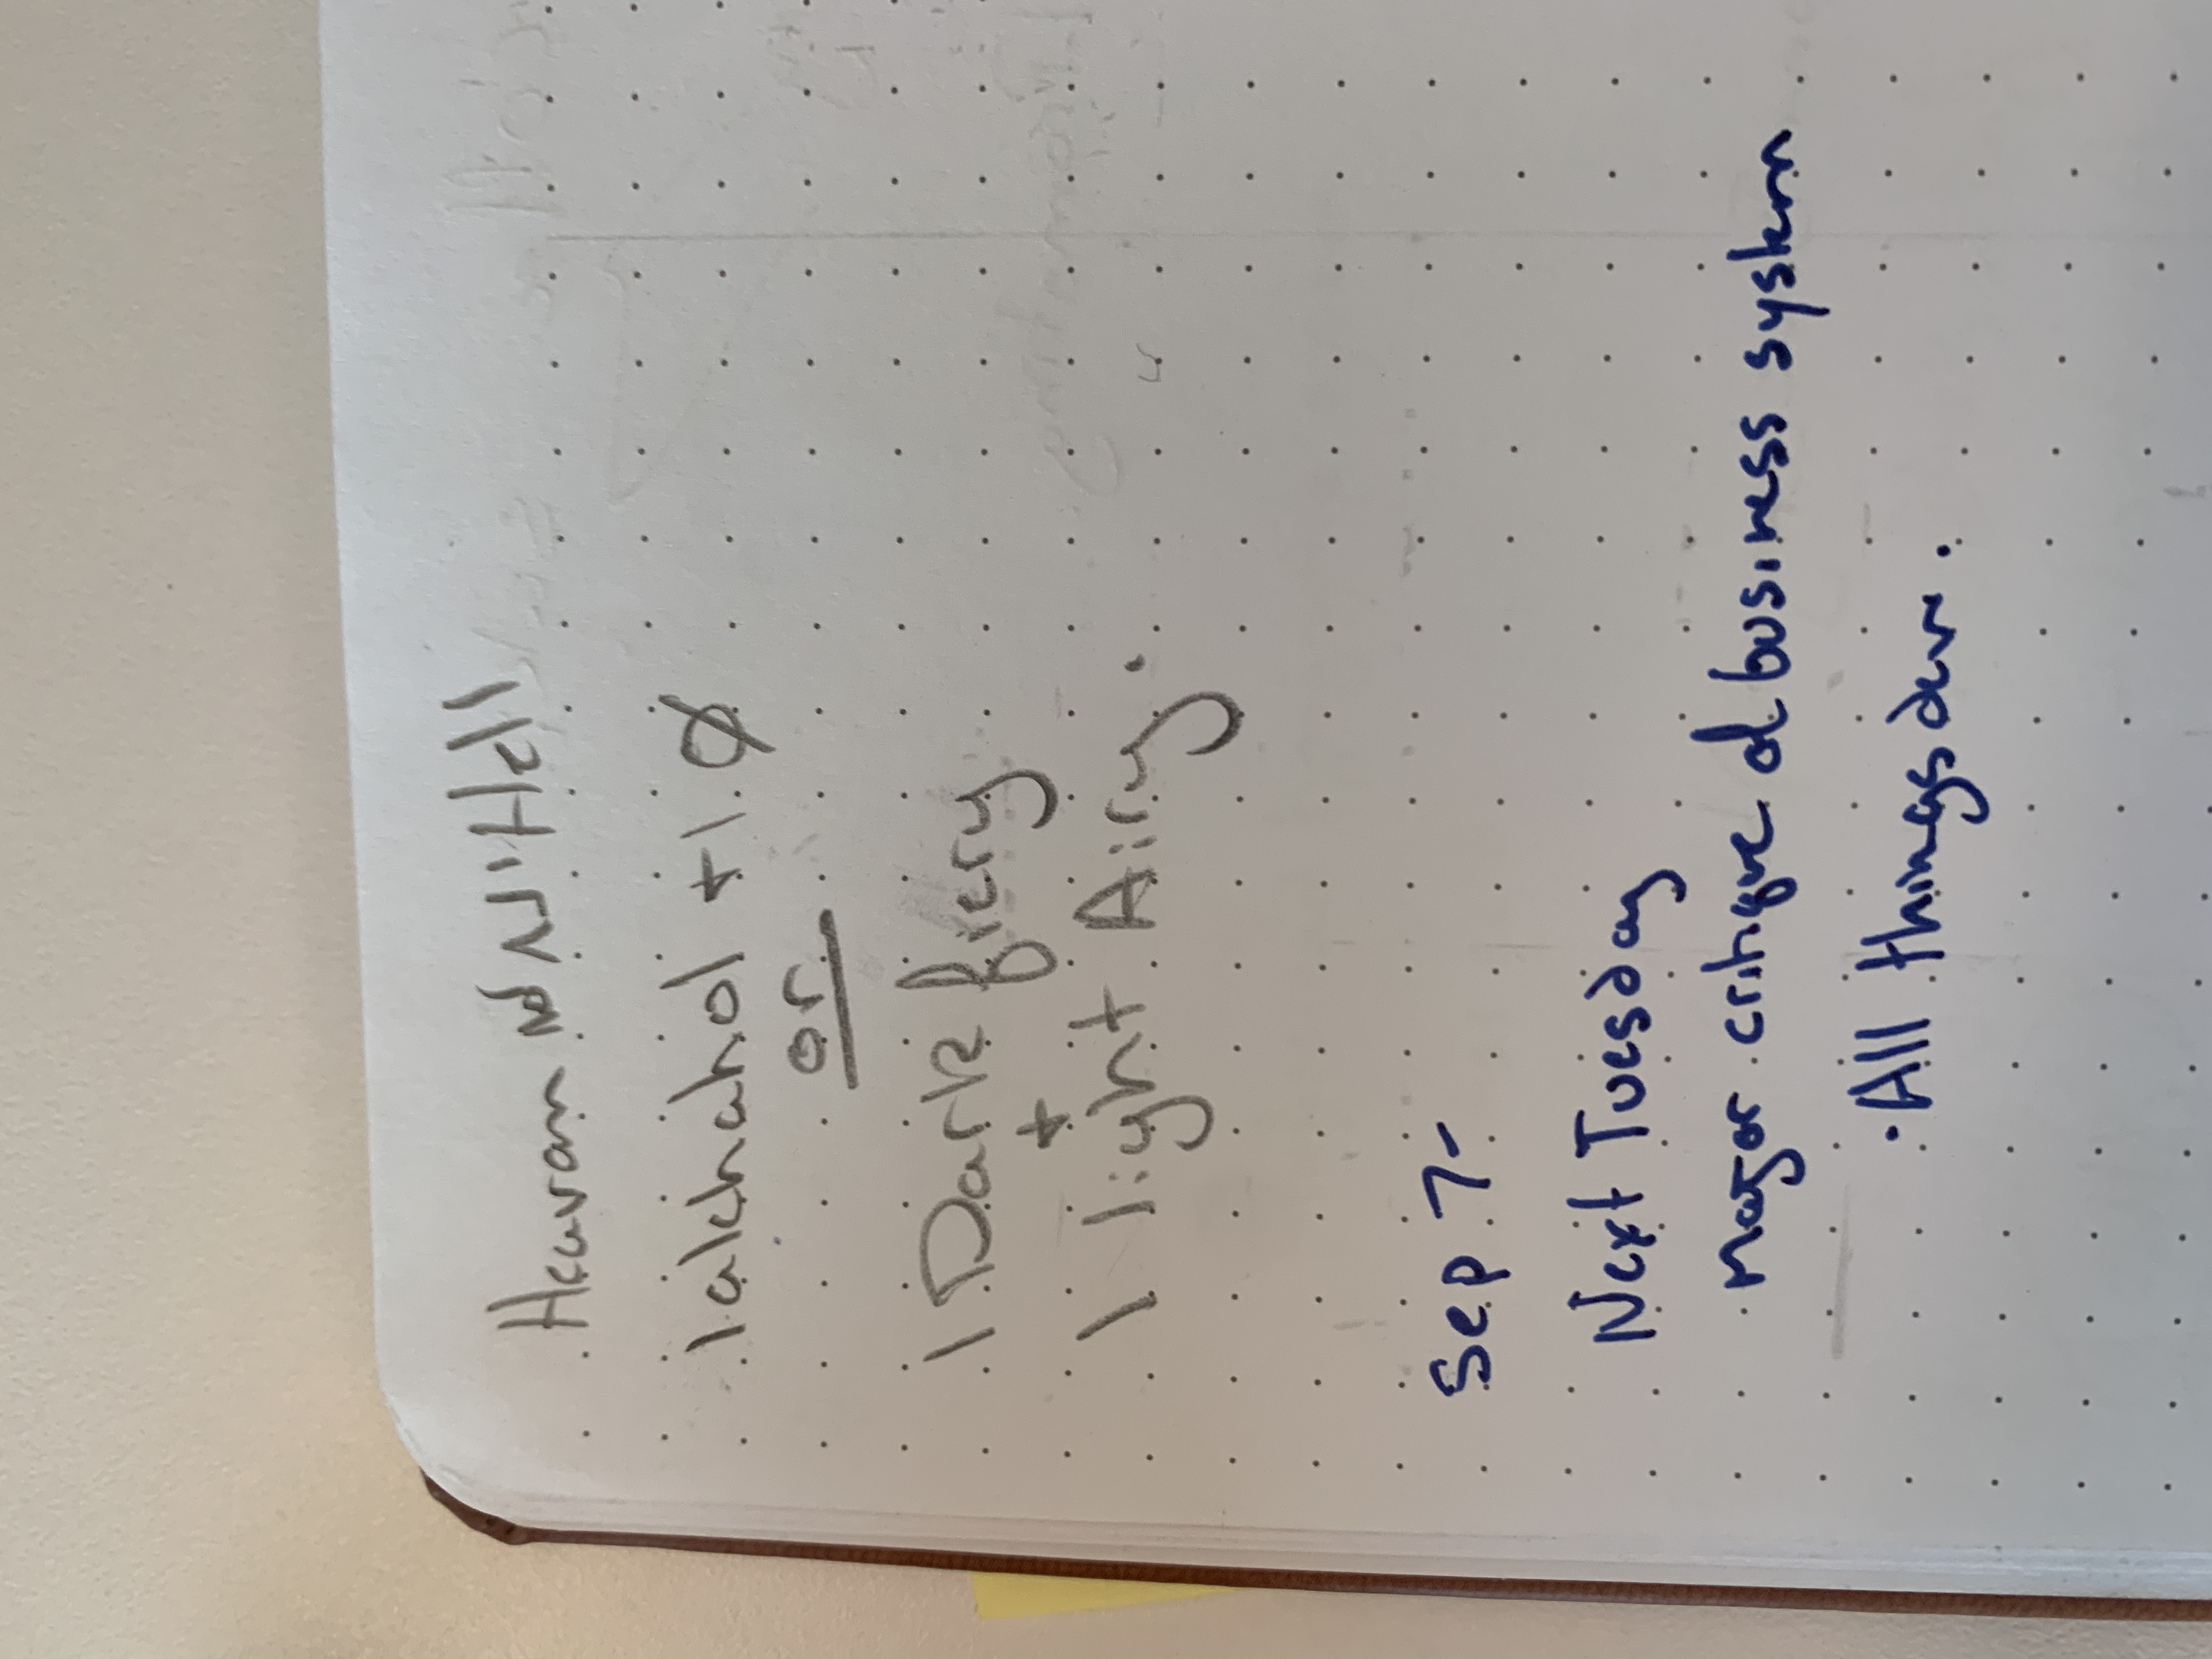 Heavan Hell
1 alchahol + 1 Ø
or
1 Dark fiery
+
1 light Airy.
Sep 7-
Next Tuesday
Major critique of business system
· All things